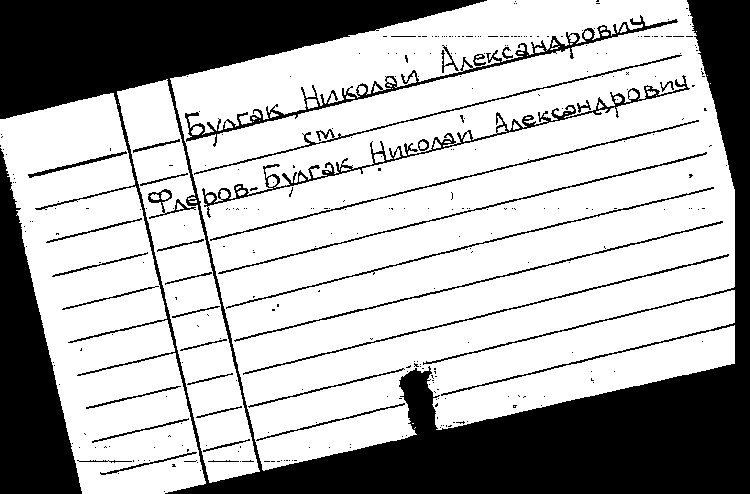 Булгак, Николай Александрович
см.
Флеров-Булгак, Николай Александрович.